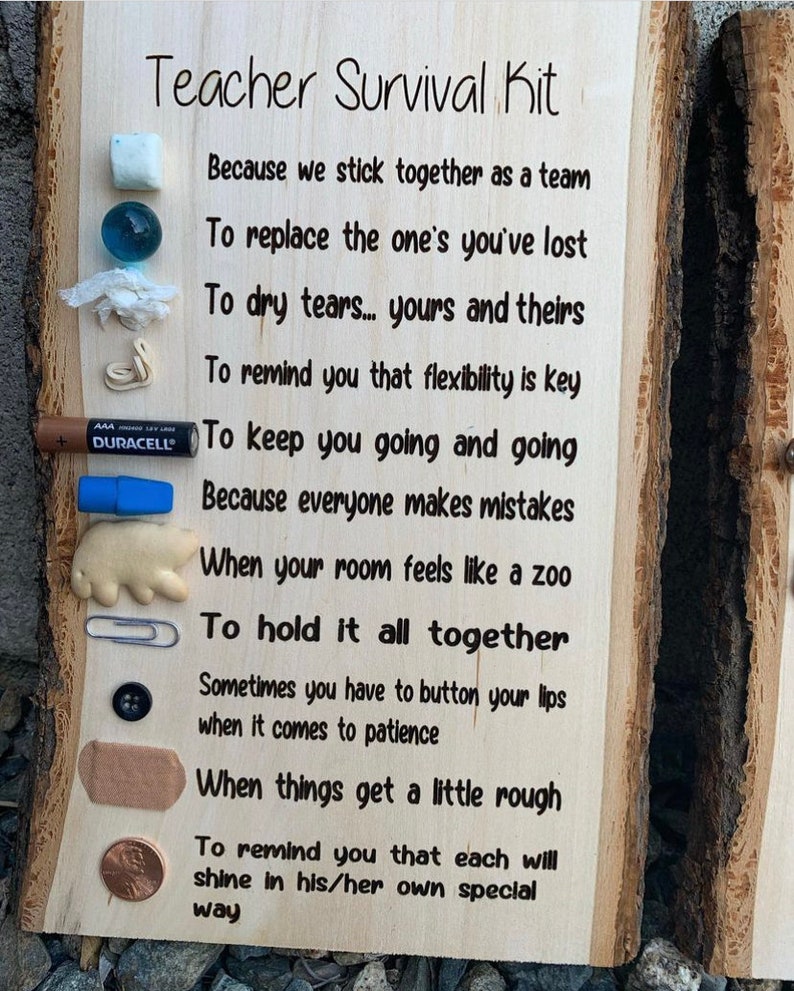 Teacher Survival Kit
Because we stick together as a team
To replace the one's you've lost
To dry tears... yours and theirs
To remind you that flexibility is key
AAA
DURACELL®
To keep you going and going
Because everyone makes mistakes
When your room feels like a zoo
To hold it all together
Sometimes you have to button your lips
when it comes to patience
When things get a little rough
To remind you that each will
shine in his/her own special
way